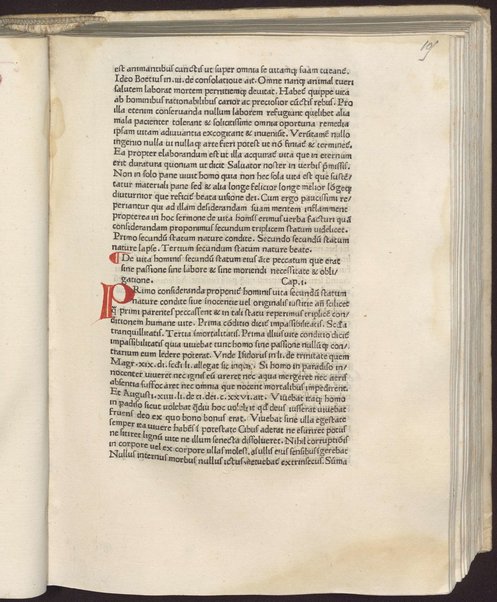 195
est animantibus cunctis ut super omnia se vitamq; suam tueant᷑.
Ideo Boetius in .iii. de consolatione ait. Omne nanq; animal tueri
salutem laborat mortem pernitiemq; devitat. Habet̄ quippe vita
ab hominibus rationabilibus carior ac preciosior cūctis rebus. Pro
illa etenim conservanda nullum laborem refugiunt quelibet alia
mala pacienter tolerant & solicitissime omnia oportuna remedia
ipsam vitam adiuvantia excogitant & inveniūt. Verūtamē nullo
ingenio nulla vi nullaq; arte fieri potest ut nō finiat᷑ & terminet᷑.
Ea propter elaborandum est ut illa acqurat᷑ vita que in eternum
erit duratura quoniam ut dicit Salvator noster in verbis p̄missis.
Non in solo pane vivit homo quia non hec sola vita est que sustē/
tatur materiali pane sed & alia longe felicior longe melior lōgeq;
diuturnior que reficit᷑ beata visione dei. Cum ergo paucissimi re/
periantur qui ad illam desiderandam suam mentem inflamment
propterea in hoc sermone de vita homīs erimus verba facturi quā
considerandam proponimus secundum triplicem statum videlicet.
Primo secundū statum nature condite. Secundo secundū statum
nature lapse. Tertium secundum statum nature beate.
De vita hominis secundū statum eius āte peccatum que erat
sine passione sine labore & sine moriendi necessitate & obli/
gatione. Cap.i.
PRimo consideranda proponit᷑ hominis vita secundū statum
nature condite sive inocentie vel originalis iustitie añ scilicet
q̄ primi parentes peccassent & in tali statu reperimus triplicē con/
ditionem humane vite. Prima cōditio dicit᷑ impassibilitatis. Scd̄a
tranquillitatis. Tertia imortalitatis. Prima illius vite conditio dicit᷑
impassibilitatis quia vivebat tunc homo sine passione nullūq; con/
trarium eum ledere poterat. Vnde Isidorus in li. de trinitate quem
Magr̄.xix.di. scd̄i li. allegat sic inquit. Si homo in paradiso in/
nocenter viveret nec ignis eū ureret nec aqua mergeret nec aeris
absentia suffocaret nec omnia que nocent mortalibus impedirent.
Et Augusti.xiiii.li.de ci.dei.c.xxvi.ait. Vivebat itaq; homo
in padiso sicut volebat q̄diu hoc volebat qd̄ deus iusserat vivebat
fruens deo ex quo bono bonus erat. Vivebat sine ulla egestate
semper ita vivere habēs ī potestate Cibus aderat ne esuriret potus
ne sitiret lignū vite ne illum senecta dissolveret. Nihil corruptiōis
in corpore vel ex corpore ulla molest᷑ as ullis eius sensibus īgerebat
Nullus internus morbus nullus ictus metuebat᷑ extrinsecus. Sūma